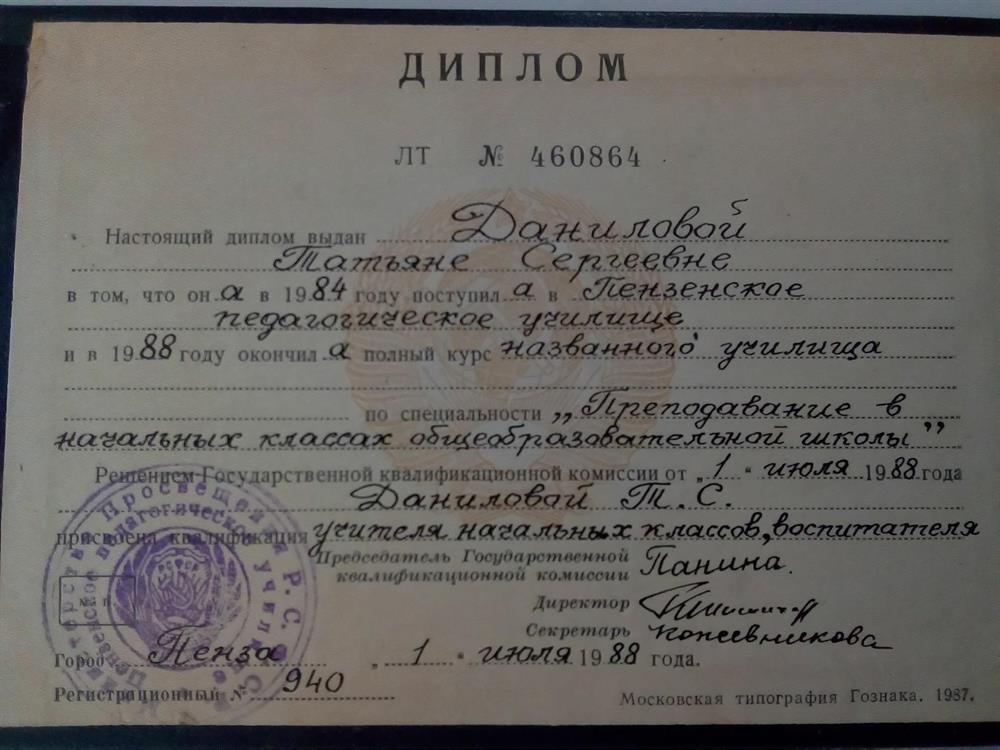 ДИПЛОМ
ЛТ № 460864
Настоящий диплом выдан Даниловой
Татьяне Сергеевне
в том, что он а в 1984 году поступил а в Пензенское
педагогическое училище
и в 1988 году окончил а полный курс названного училища
по специальности „Преподавание в
начальных классах общеобразовательной школы”
Решением Государственной квалификационной комиссии от „1“ июля 1988 года
Даниловой Т. С.
присвоена квалификация учителя начальных классов, воспитателя
Председатель Государственной
квалификационной комиссии Панина.
Директор
Секретарь Кожевникова
Город Пенза „1“ июля 1988 года.
Регистрационный № 940
Московская типография Гознака. 1987.
Министерство Просвещения Р.С.Ф.С.Р.
Пензенское педагогическое училище